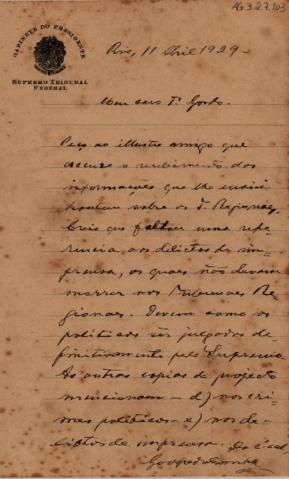 AG 3.2.7.103
GABINETE DO PRESIDENTE
SUPREMO TRIBUNAL
FEDERAL
Rio, 11 Abril 1929
Meu caro Dr. Gordo.
Peço ao illustre amigo que
accuse o recebimento das
informações que lhe
sobre os
Creio que faltou uma refe-
rencia aos delictos de im-
prensa, os quaes não devem
morrer nos Tribunaes Re-
gionaes. Devem como os
politicos ser julgados de-
finitivamente pelo Supremo.
As outras copias do projecto
mencionam - d) nos cri-
mes politicos - e) nos de-
lictos de imprensa.